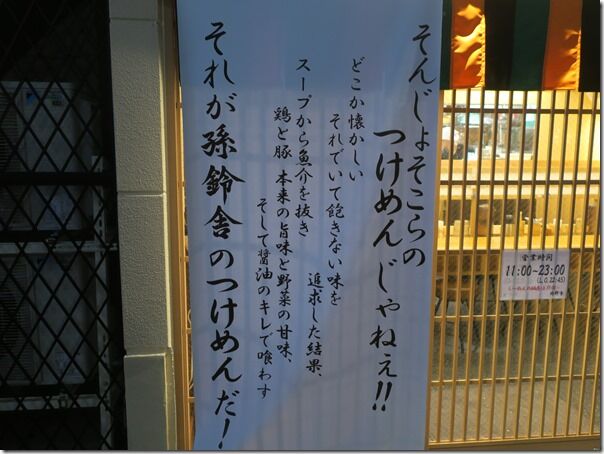 そんじょそこらの
つけめんじゃねぇ!!
どこか懐かしい
それでいて飽きない味を
追求した結果、
スープから魚介を抜き
鶏と豚 本来の旨味と野菜の甘味、
そして醤油のキレで喰わす
それが孫鈴舎のつけめんだ!
営業時間
11:00~23:00
(L.O.22:45)